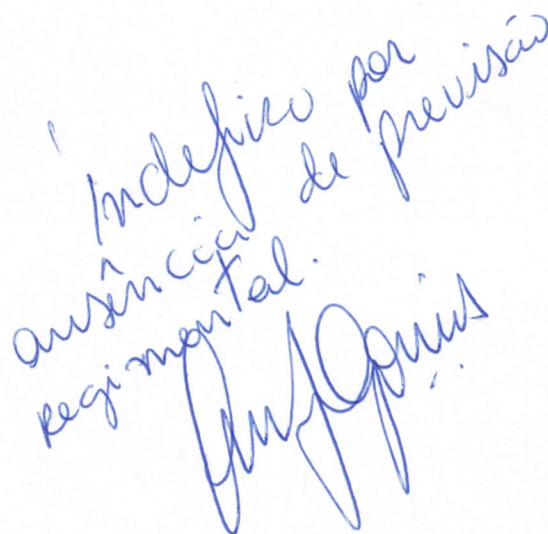 Indefiro por
ausência de previsão
regimental.